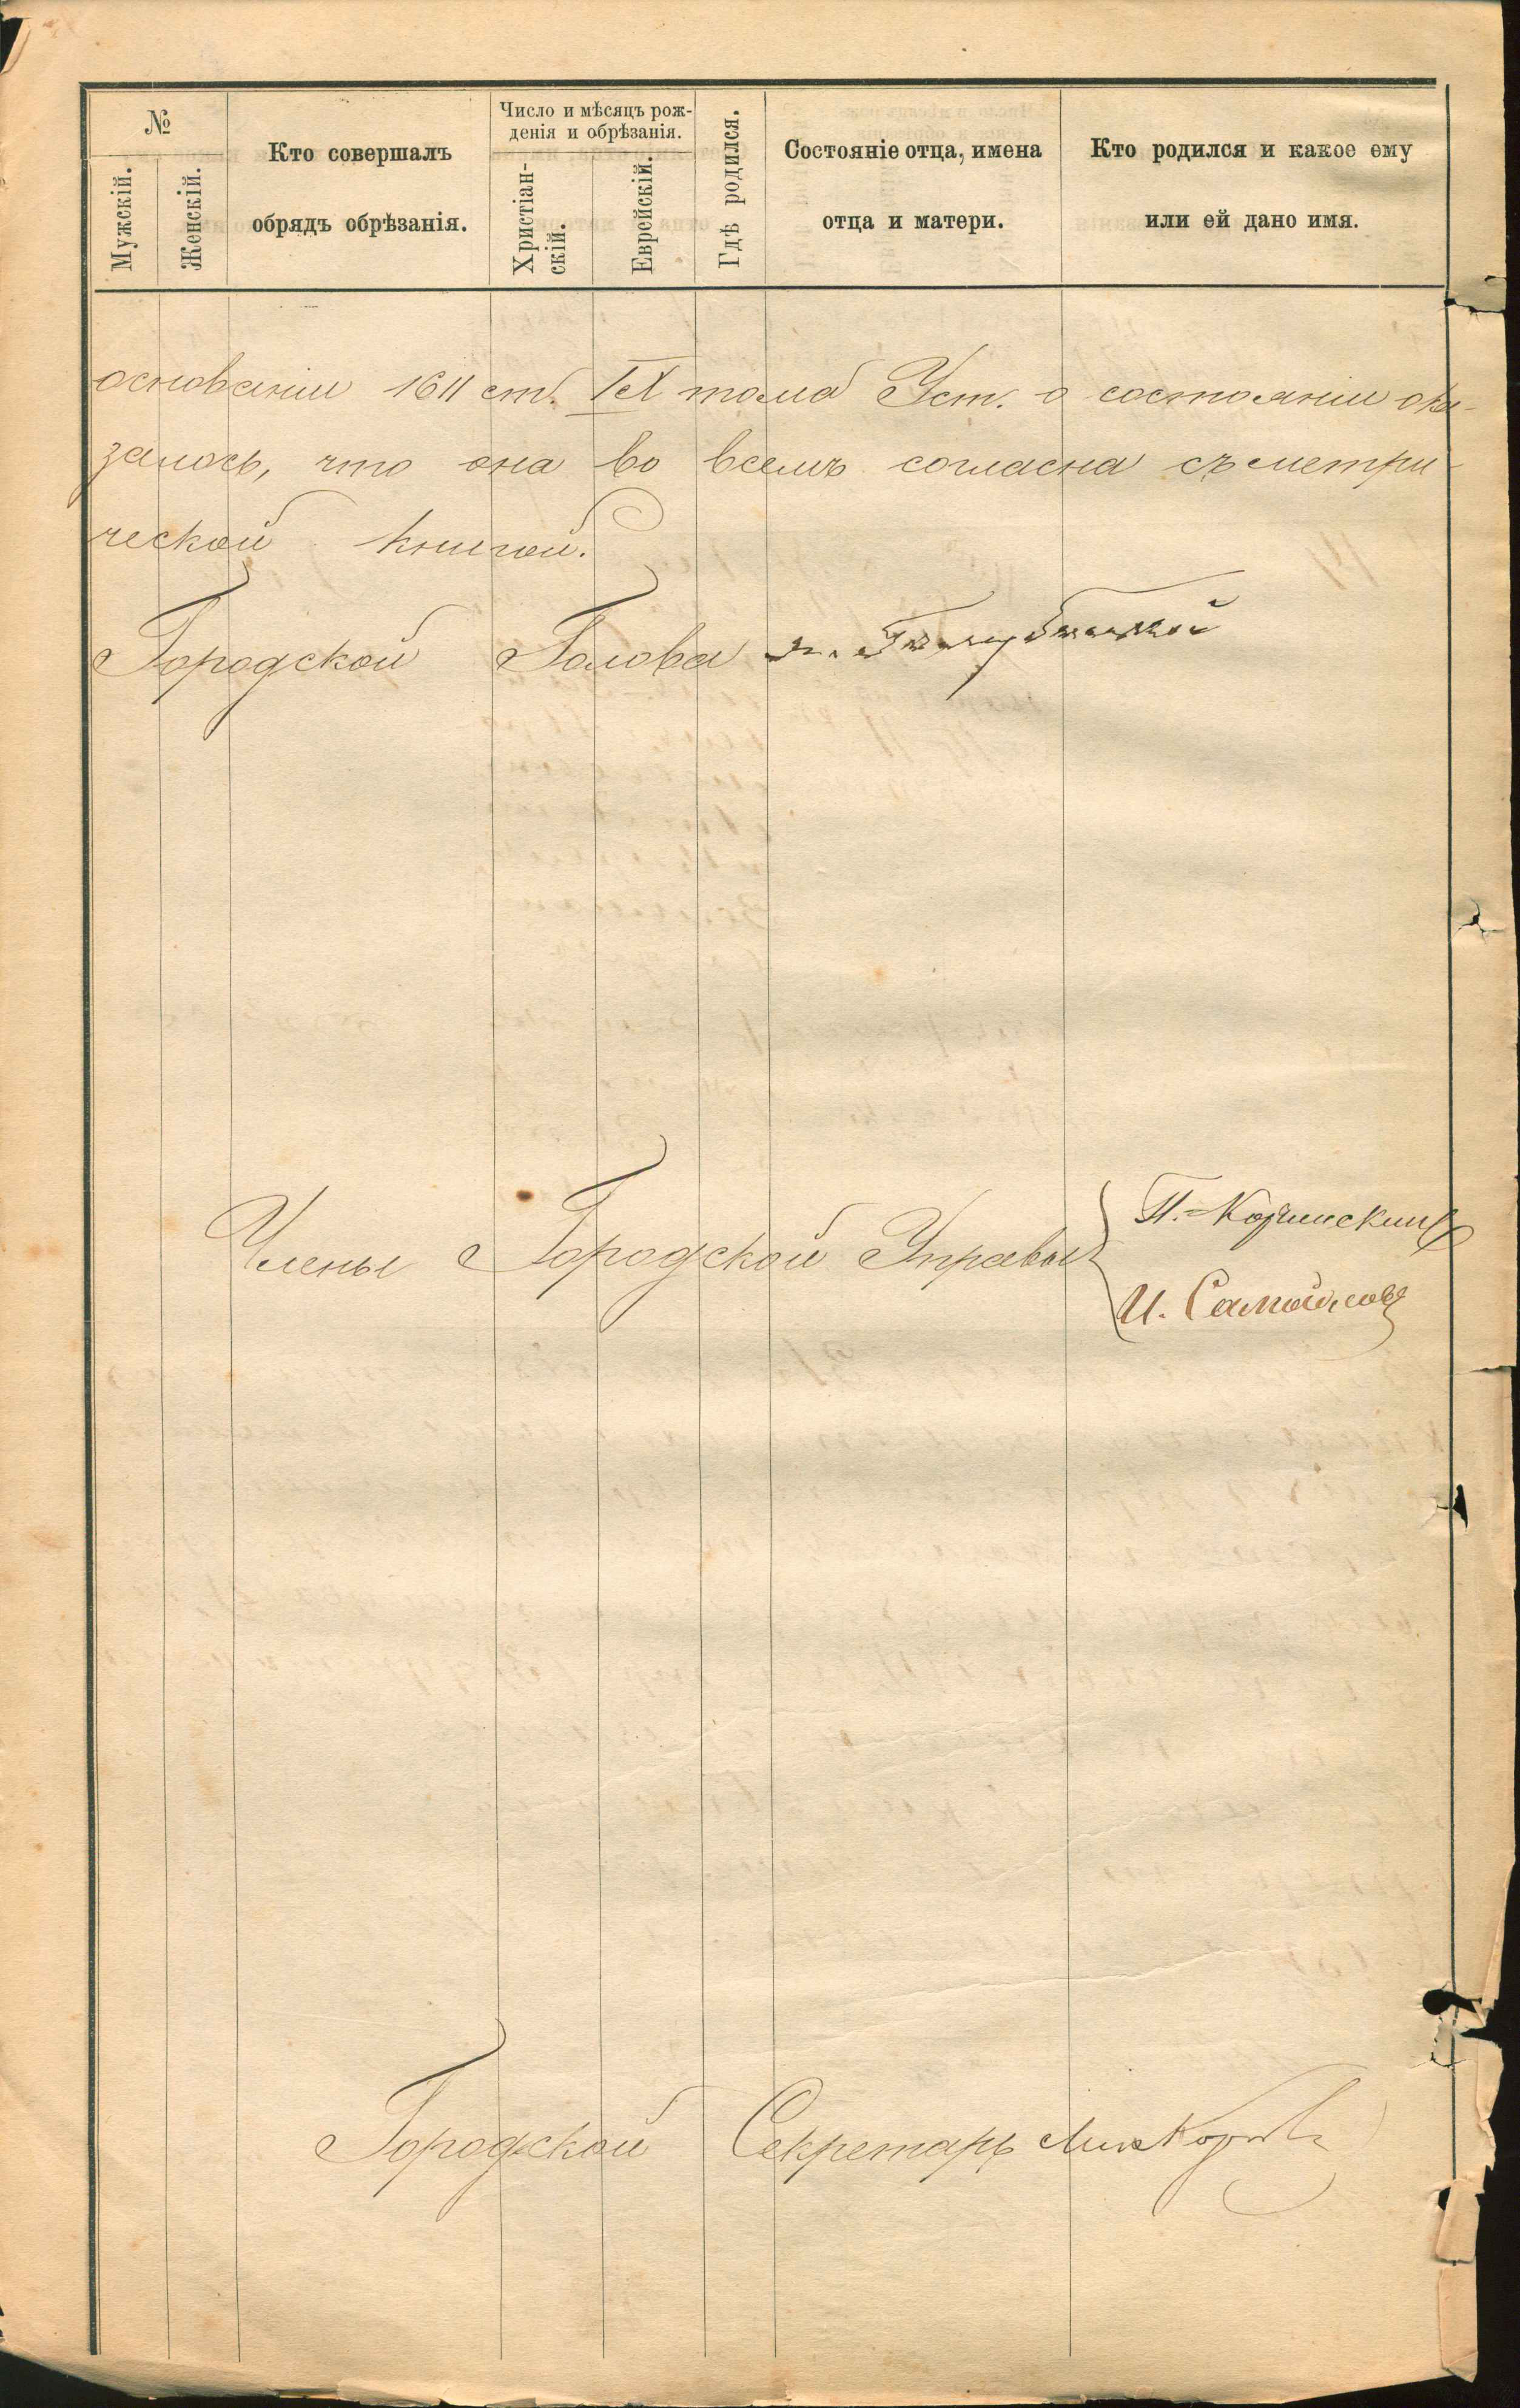 №
Мужскій.
Женскій.
Кто совершалъ
обрядъ обрѣзанія.
Число и мѣсяцъ рож-
денія и обрѣзанія.
Христіан-
скій.
Еврейскій.
Гдѣ родился.
Состояніе отца, имена
отца и матери.
Кто родился и какое ему
или ей дано имя.
основаніи 1611 ст. IX тома Уст. о состояніи ока-
залось, что она во всемъ согласна съ метри-
ческой книгой.
Городской Голова
Члены Городской Управы
П.
И. Самойловъ
Городской Секретарь